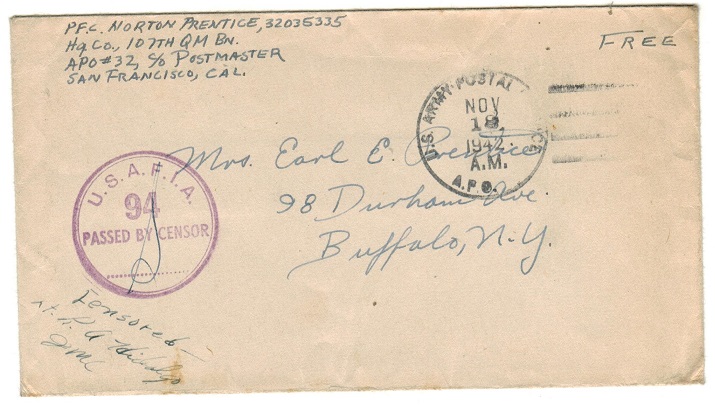 PFC. NORTON PRENTICE, 32035335
HQ CO., 107TH QM BN.
APO #32, C/O POSTMASTER
SAN FRANCISCO, CAL.
FREE
U.S. ARMY POSTAL
NOV
18
1942
A.M.
A.P.O.
Mrs. Earl E. Prentice
98 Durham Ave.
Buffalo, N.Y.
U.S.A.F.I.A.
94
PASSED BY CENSOR
Censored
QMC